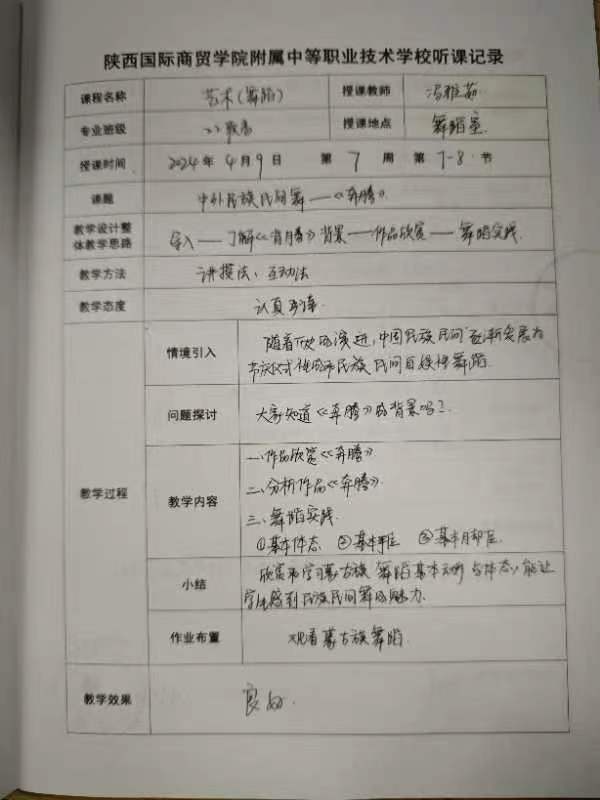 陕西国际商贸学院附属中等职业技术学校听课记录
课程名称 艺术(舞蹈) 授课教师 冯雅茹
专业班级 授课地点 舞蹈室
授课时间 2024 年 4 月 9 日 第 7 周 第 7-8 节
课题 中外民族民间舞——《奔腾》
教学设计整体教学思路 导入——了解《奔腾》背景——作品欣赏——舞蹈实践
教学方法 讲授法、互动法
教学态度 认真
教学过程
情境引入 随着历史的演进,中国民族民间逐渐发展为
节庆仪式 民族民间自娱性舞蹈.
问题探讨 大家知道《奔腾》的背景吗?
教学内容
一.作品欣赏《奔腾》
二.分析作品《奔腾》
三.舞蹈实践
①基本体态 ②基本手位 ③基本脚位
小结 欣赏和学习蒙古族舞蹈基本元素与体态,能让
学生感到民族民间舞的魅力.
作业布置 观看蒙古族舞蹈
教学效果 良好.